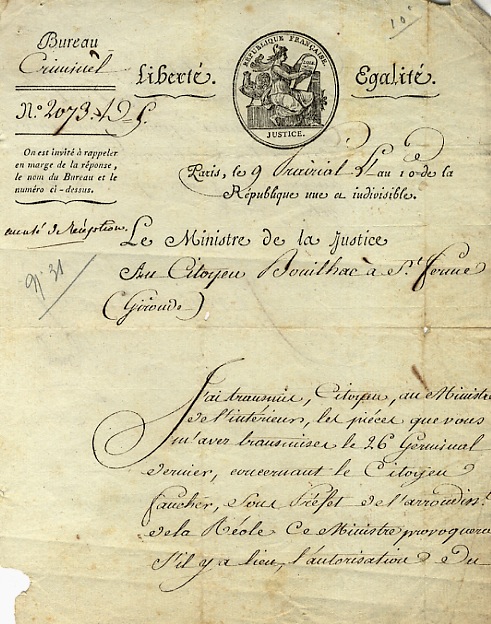 10
Bureau
Criminel
N.º 2073. D 5.
On est invité à rappeler
en marge de la réponse,
le nom du Bureau et le
numéro ci-dessus.
Liberté.
RÉPUBLIQUE FRANÇAISE.
JUSTICE.
Egalité.
Paris, le 9 Prairial l'an 10.e de la
République une et indivisible.
de Réception.
N.º 31
Le Ministre de la Justice
Au Citoyen Bouilhac à S.t ferme
(Gironde)
J'ai transmis, Citoyen, au Ministre
de l'intérieur, les pièces que vous
m'avez transmises le 26 Germinal
dernier, concernant le Citoyen
faucher, Sous Préfet de l'arrondiss.t
de la Réole Ce Ministre provoquera
S'il y a lieu, l'autorisation du